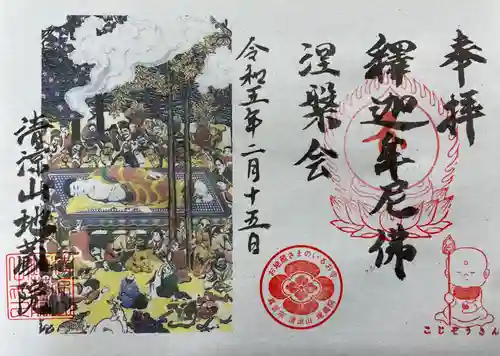 奉拝
釋迦牟尼佛
涅槃会
令和五年二月十五日
清涼山地蔵院
お地蔵さまのいるお寺
清涼山
こじぞうさん